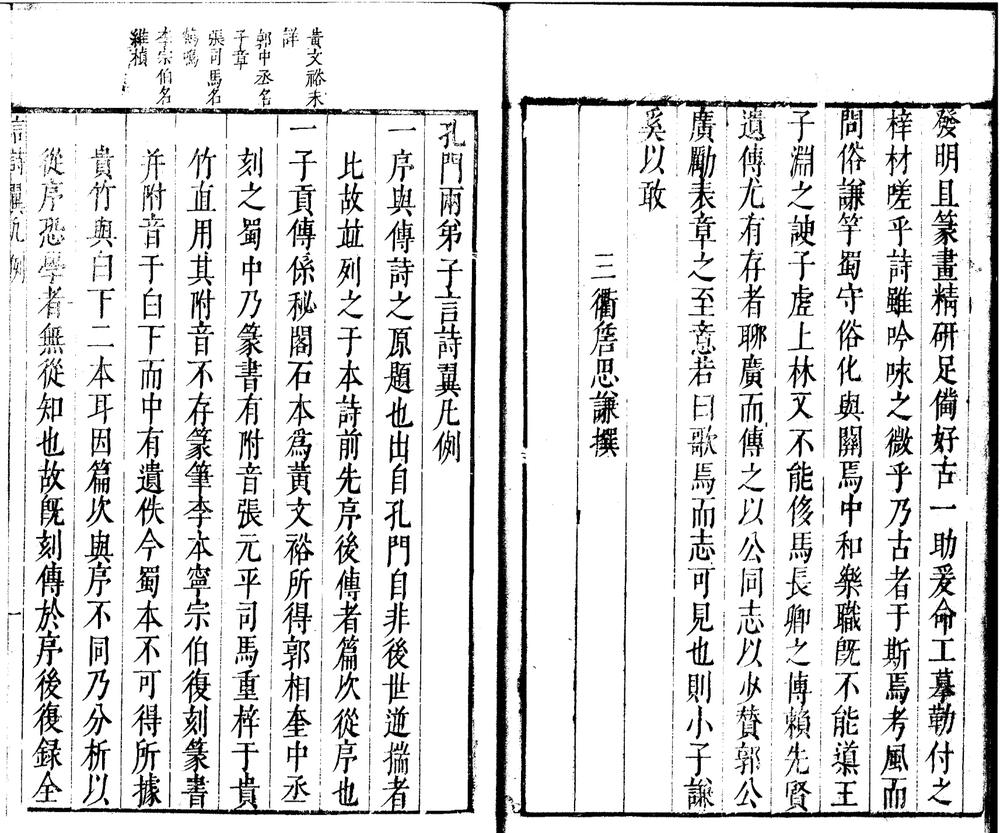 發明且篆畫精研足備好古一助爰命工摹勒付之
梓材嗟乎詩雖吟咏之微乎乃古者于斯焉考風而
問俗謙竽蜀守俗化與關焉中和樂職旣不能藁王
子淵之諛子虛上林又不能侈馬長卿之傳賴先賢
遺傳尤有存者聊廣而傳之以公同志以少贊郭公
廣勵表章之至意若曰歌焉而志可見也則小子謙
奚以敢
三衢詹思謙撰
黃文裕末
詳
郭中丞名
子章
張司馬名
鶴鳴
李宗伯名
維楨
孔門兩弟子言詩翼凡例
一序與傳詩之原題也出自孔門自非後世逆揣者
比故並列之于本詩前先序後傳者篇次從序也
一子貢傳係秘閣石本爲黃文裕所得郭相奎中丞
刻之蜀中乃篆書有附音張元平司馬重梓于貴
竹直用其附音不存篆筆李本寧宗伯復刻篆書
并附音于白下而中有遺佚今蜀本不可得所據
貴竹與白下二本耳因篇次與序不同乃分析以
從序恐學者無從知也故旣刻傳於序後復録全
言詩翼凡例
一